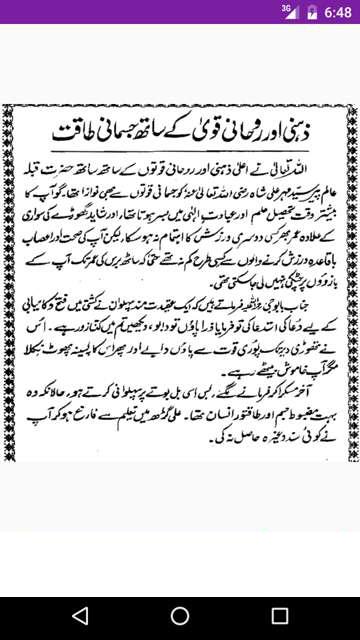 3G 6:48
ذہنی اور روحانی قویٰ کے ساتھ جسمانی طاقت
اللہ تعالیٰ نے اعلیٰ ذہنی اور روحانی قوتوں کے ساتھ ساتھ حضرت قبلہ
عالم پیر سید مہر علی شاہ رضی اللہ تعالیٰ عنہ کو جسمانی قوتوں سے بھی نوازا تھا۔ گو آپ کا
بیشتر وقت تحصیل علم اور عبادتِ الٰہی میں بسر ہوتا تھا، اور شاید گھوڑے کی سواری
کے علاوہ عمر بھر کسی دوسری ورزش کا اہتمام نہ ہو سکا، لیکن آپ کی صحت اور اعصاب
باقاعدہ ورزش کرنے والوں سے کسی طرح کم نہ تھے حتیٰ کہ ساٹھ برس کی عمر تک آپ کے
بازوؤں پر چٹکی نہیں لی جا سکتی تھی۔
جناب بابوجی فرماتے ہیں کہ ایک عقیدت مند پہلوان نے کشتی میں فتح و کامیابی
کے لیے دعا کی استدعا کی تو فرمایا ذرا پاؤں تو دابو، دیکھیں تم میں کتنا زور ہے۔ اس
نے تھوڑی دیر تک پوری قوت سے پاؤں دابے اور پھر اس کا پسینہ پھوٹ نکلا
مگر آپ خاموش بیٹھے رہے۔
آخر مسکرا کر فرمانے لگے، بس اسی بل بوتے پر پہلوانی کرتے ہو، حالانکہ وہ
بہت مضبوط جسم اور طاقتور انسان تھا۔ علی گڑھ میں تعلیم سے فارغ ہو کر آپ
نے کوئی سند وغیرہ حاصل نہ کی۔